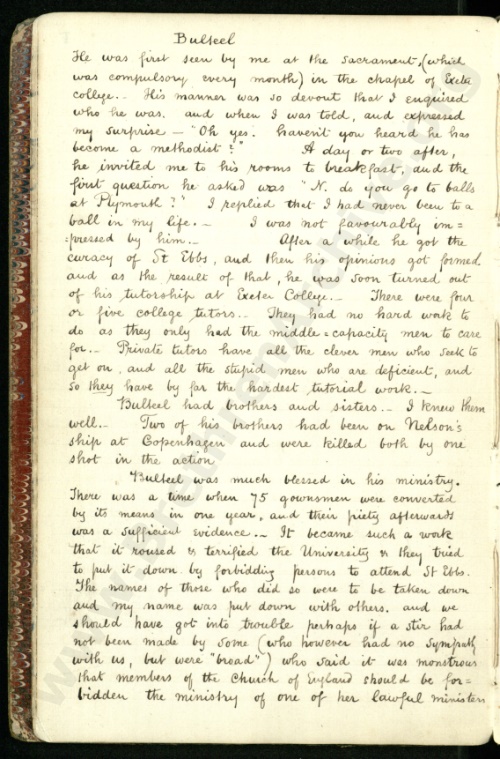 Bulteel
He was first seen by me at the sacrament, (which
was compulsory every month) in the chapel of Exeter
college.– His manner was so devout that I enquired
who he was, and when I was told, and expressed
my surprise – "Oh yes. haven't you heard he has
become a methodist?" A day or two after,
he invited me to his rooms to breakfast, and the
first question he asked was "N. do you go to balls
at Plymouth?" I replied that I had never been to a
ball in my life.– I was not favourably im=
=pressed by him.– After a while he got the
curacy of St Ebbs, and then his opinions got formed
and as the result of that, he was soon turned out
of his tutorship at Exeter College.– There were four
or five college tutors.– They had no hard work to
do as they only had the middle=capacity men to care
for.– Private tutors have all the clever men who seek to
get on, and all the stupid men who are deficient, and
so they have by far the hardest tutorial work.–
Bulteel had brothers and sisters.– I knew them
well.– Two of his brothers had been on Nelson's
ship at Copenhagen and were killed both by one
shot in the action
Bulteel was much blessed in his ministry.
There was a time when 75 gownsmen were converted
by its means in one year, and their piety afterwards
was a sufficient evidence.– It became such a work
that it roused & terrified the University & they tried
to put it down by forbidding persons to attend St Ebbs.
The names of those who did so were to be taken down
and my name was put down with others. and we
should have got into trouble perhaps if a stir had
not been made by some (who however had no sympathy
with us, but were "broad") who said it was monstrous
that members of the Church of England should be for=
bidden the ministry of one of her lawful ministers